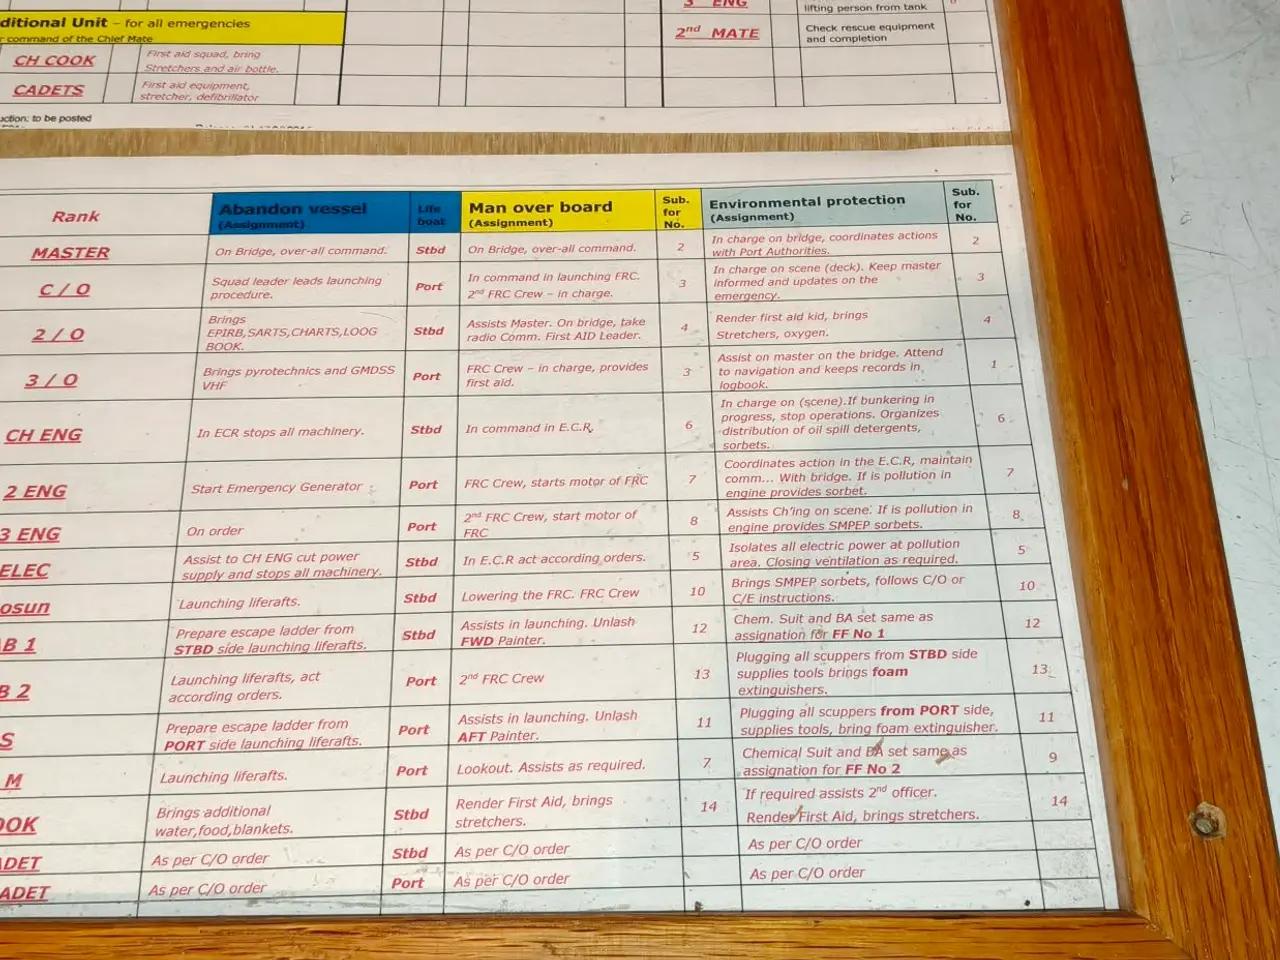 ditional Unit – for all emergencies
r command of the Chief Mate
CH COOK
First aid squad, bring
Stretchers and air bottle.
CADETS
First aid equipment,
stretcher, defibrillator
3 ENG
lifting person from tank
2nd MATE
Check rescue equipment
and completion
uction: to be posted
Rank
Abandon vessel
(Assignment)
Life
boat
Man over board
(Assignment)
Sub.
for
No.
Environmental protection
(Assignment)
Sub.
for
No.
MASTER
On Bridge, over-all command.
Stbd
On Bridge, over-all command.
2
In charge on bridge, coordinates actions
with Port Authorities.
2
C / O
Squad leader leads launching
procedure.
Port
In command in launching FRC.
2nd FRC Crew – in charge.
3
In charge on scene (deck). Keep master
informed and updates on the
emergency.
3
2 / O
Brings
EPIRB,SARTS,CHARTS,LOOG
BOOK.
Stbd
Assists Master. On bridge, take
radio Comm. First AID Leader.
4
Render first aid kid, brings
Stretchers, oxygen.
4
3 / O
Brings pyrotechnics and GMDSS
VHF
Port
FRC Crew – in charge, provides
first aid.
3
Assist on master on the bridge. Attend
to navigation and keeps records in
logbook.
1
CH ENG
In ECR stops all machinery.
Stbd
In command in E.C.R.
6
In charge on (scene).If bunkering in
progress, stop operations. Organizes
distribution of oil spill detergents,
sorbets.
6
2 ENG
Start Emergency Generator
Port
FRC Crew, starts motor of FRC
7
Coordinates action in the E.C.R, maintain
comm... With bridge. If is pollution in
engine provides sorbet.
7
3 ENG
On order
Port
2nd FRC Crew, start motor of
FRC
8
Assists Ch'ing on scene. If is pollution in
engine provides SMPEP sorbets.
8
ELEC
Assist to CH ENG cut power
supply and stops all machinery.
Stbd
In E.C.R act according orders.
5
Isolates all electric power at pollution
area. Closing ventilation as required.
5
osun
Launching liferafts.
Stbd
Lowering the FRC. FRC Crew
10
Brings SMPEP sorbets, follows C/O or
C/E instructions.
10
B 1
Prepare escape ladder from
STBD side launching liferafts.
Stbd
Assists in launching. Unlash
FWD Painter.
12
Chem. Suit and BA set same as
assignation for FF No 1
12
B 2
Launching liferafts, act
according orders.
Port
2nd FRC Crew
13
Plugging all scuppers from STBD side
supplies tools brings foam
extinguishers.
13
S
Prepare escape ladder from
PORT side launching liferafts.
Port
Assists in launching. Unlash
AFT Painter.
11
Plugging all scuppers from PORT side,
supplies tools, bring foam extinguisher.
11
M
Launching liferafts.
Port
Lookout. Assists as required.
7
Chemical Suit and BA set same as
assignation for FF No 2
9
OOK
Brings additional
water,food,blankets.
Stbd
Render First Aid, brings
stretchers.
14
If required assists 2nd officer.
Render First Aid, brings stretchers.
14
ADET
As per C/O order
Stbd
As per C/O order
As per C/O order
ADET
As per C/O order
Port
As per C/O order
As per C/O order